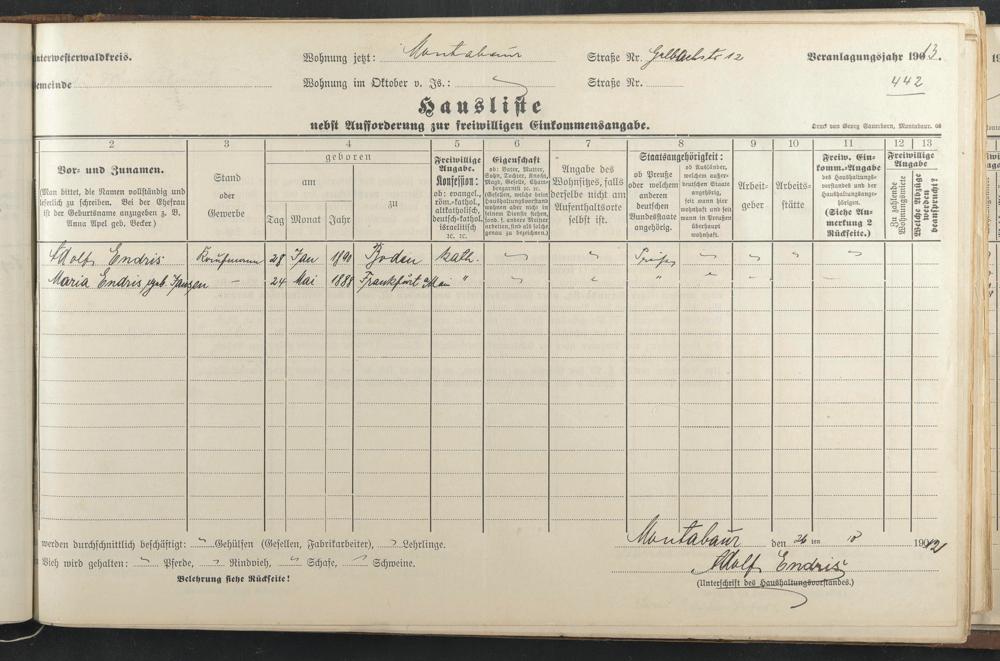 nterwesterwaldkreis. Wohnung jetzt: Montabaur Straße Nr. Gelbachstr 12 Veranlagungsjahr 1913.
emeinde Wohnung im Oktober v. Js.: Straße Nr. 442
Hausliste
nebst Aufforderung zur freiwilligen Einkommensangabe.
Druck von Georg Sauerborn, Montabaur.
2 3 4 5 6 7 8 9 10 11 12 13
Vor- und Zunamen.
(Man bittet, die Namen vollständig und
leserlich zu schreiben. Bei der Ehefrau
ist der Geburtsname anzugeben z. B.
Anna Apel geb. Becker)
Stand
oder
Gewerbe
geboren
am
Tag Monat Jahr
zu
Freiwillige
Angabe.
Konfession:
ob: evangel.,
röm.-kathol.,
altkatholisch,
deutsch-kathol.
israelitisch
ꝛc. ꝛc.
Eigenschaft
ob: Vater, Mutter,
Sohn, Tochter, Knecht,
Magd, Geselle, Cham-
bergarnist ꝛc. ꝛc.
(Gesellen, welche beim
Haushaltungsvorstand
wohnen aber nicht in
seinem Dienste stehen,
sond. f. andere Meister
arbeiten, sind als solche
genau zu bezeichnen.)
Angabe des
Wohnsitzes, falls
derselbe nicht am
Aufenthaltsorte
selbst ist.
Staatsangehörigkeit:
ob Preuße
oder welchem
anderen
deutschen
Bundesstaate
angehörig.
ob Ausländer,
welchem außer-
deutschen Staate
angehörig,
seit wann hier
wohnhaft und seit
wann in Preußen
überhaupt
wohnhaft.
Arbeit-
geber
Arbeits-
stätte
Freiw. Ein-
komm.-Angabe
des Haushaltungs-
vorstandes und der
Haushaltungsange-
hörigen.
(Siehe An-
merkung 2
Rückseite.)
Freiwillige
Angabe
Zu zahlende
Wohnungsmiete
Welche Abzüge
werden
beansprucht?
Adolf Endris Kaufmann 28 Jan 1890 Boden kath. Preuße
Maria Endris, geb. Jansen – 24 Mai 1888 Frankfurt a/Main " "
werden durchschnittlich beschäftigt: Gehülfen (Gesellen, Fabrikarbeiter), Lehrlinge.
Vieh wird gehalten: Pferde, Rindvieh, Schafe, Schweine.
Belehrung siehe Rückseite!
Montabaur den 26 ten 10 1912
Adolf Endris
(Unterschrift des Haushaltungsvorstandes.)